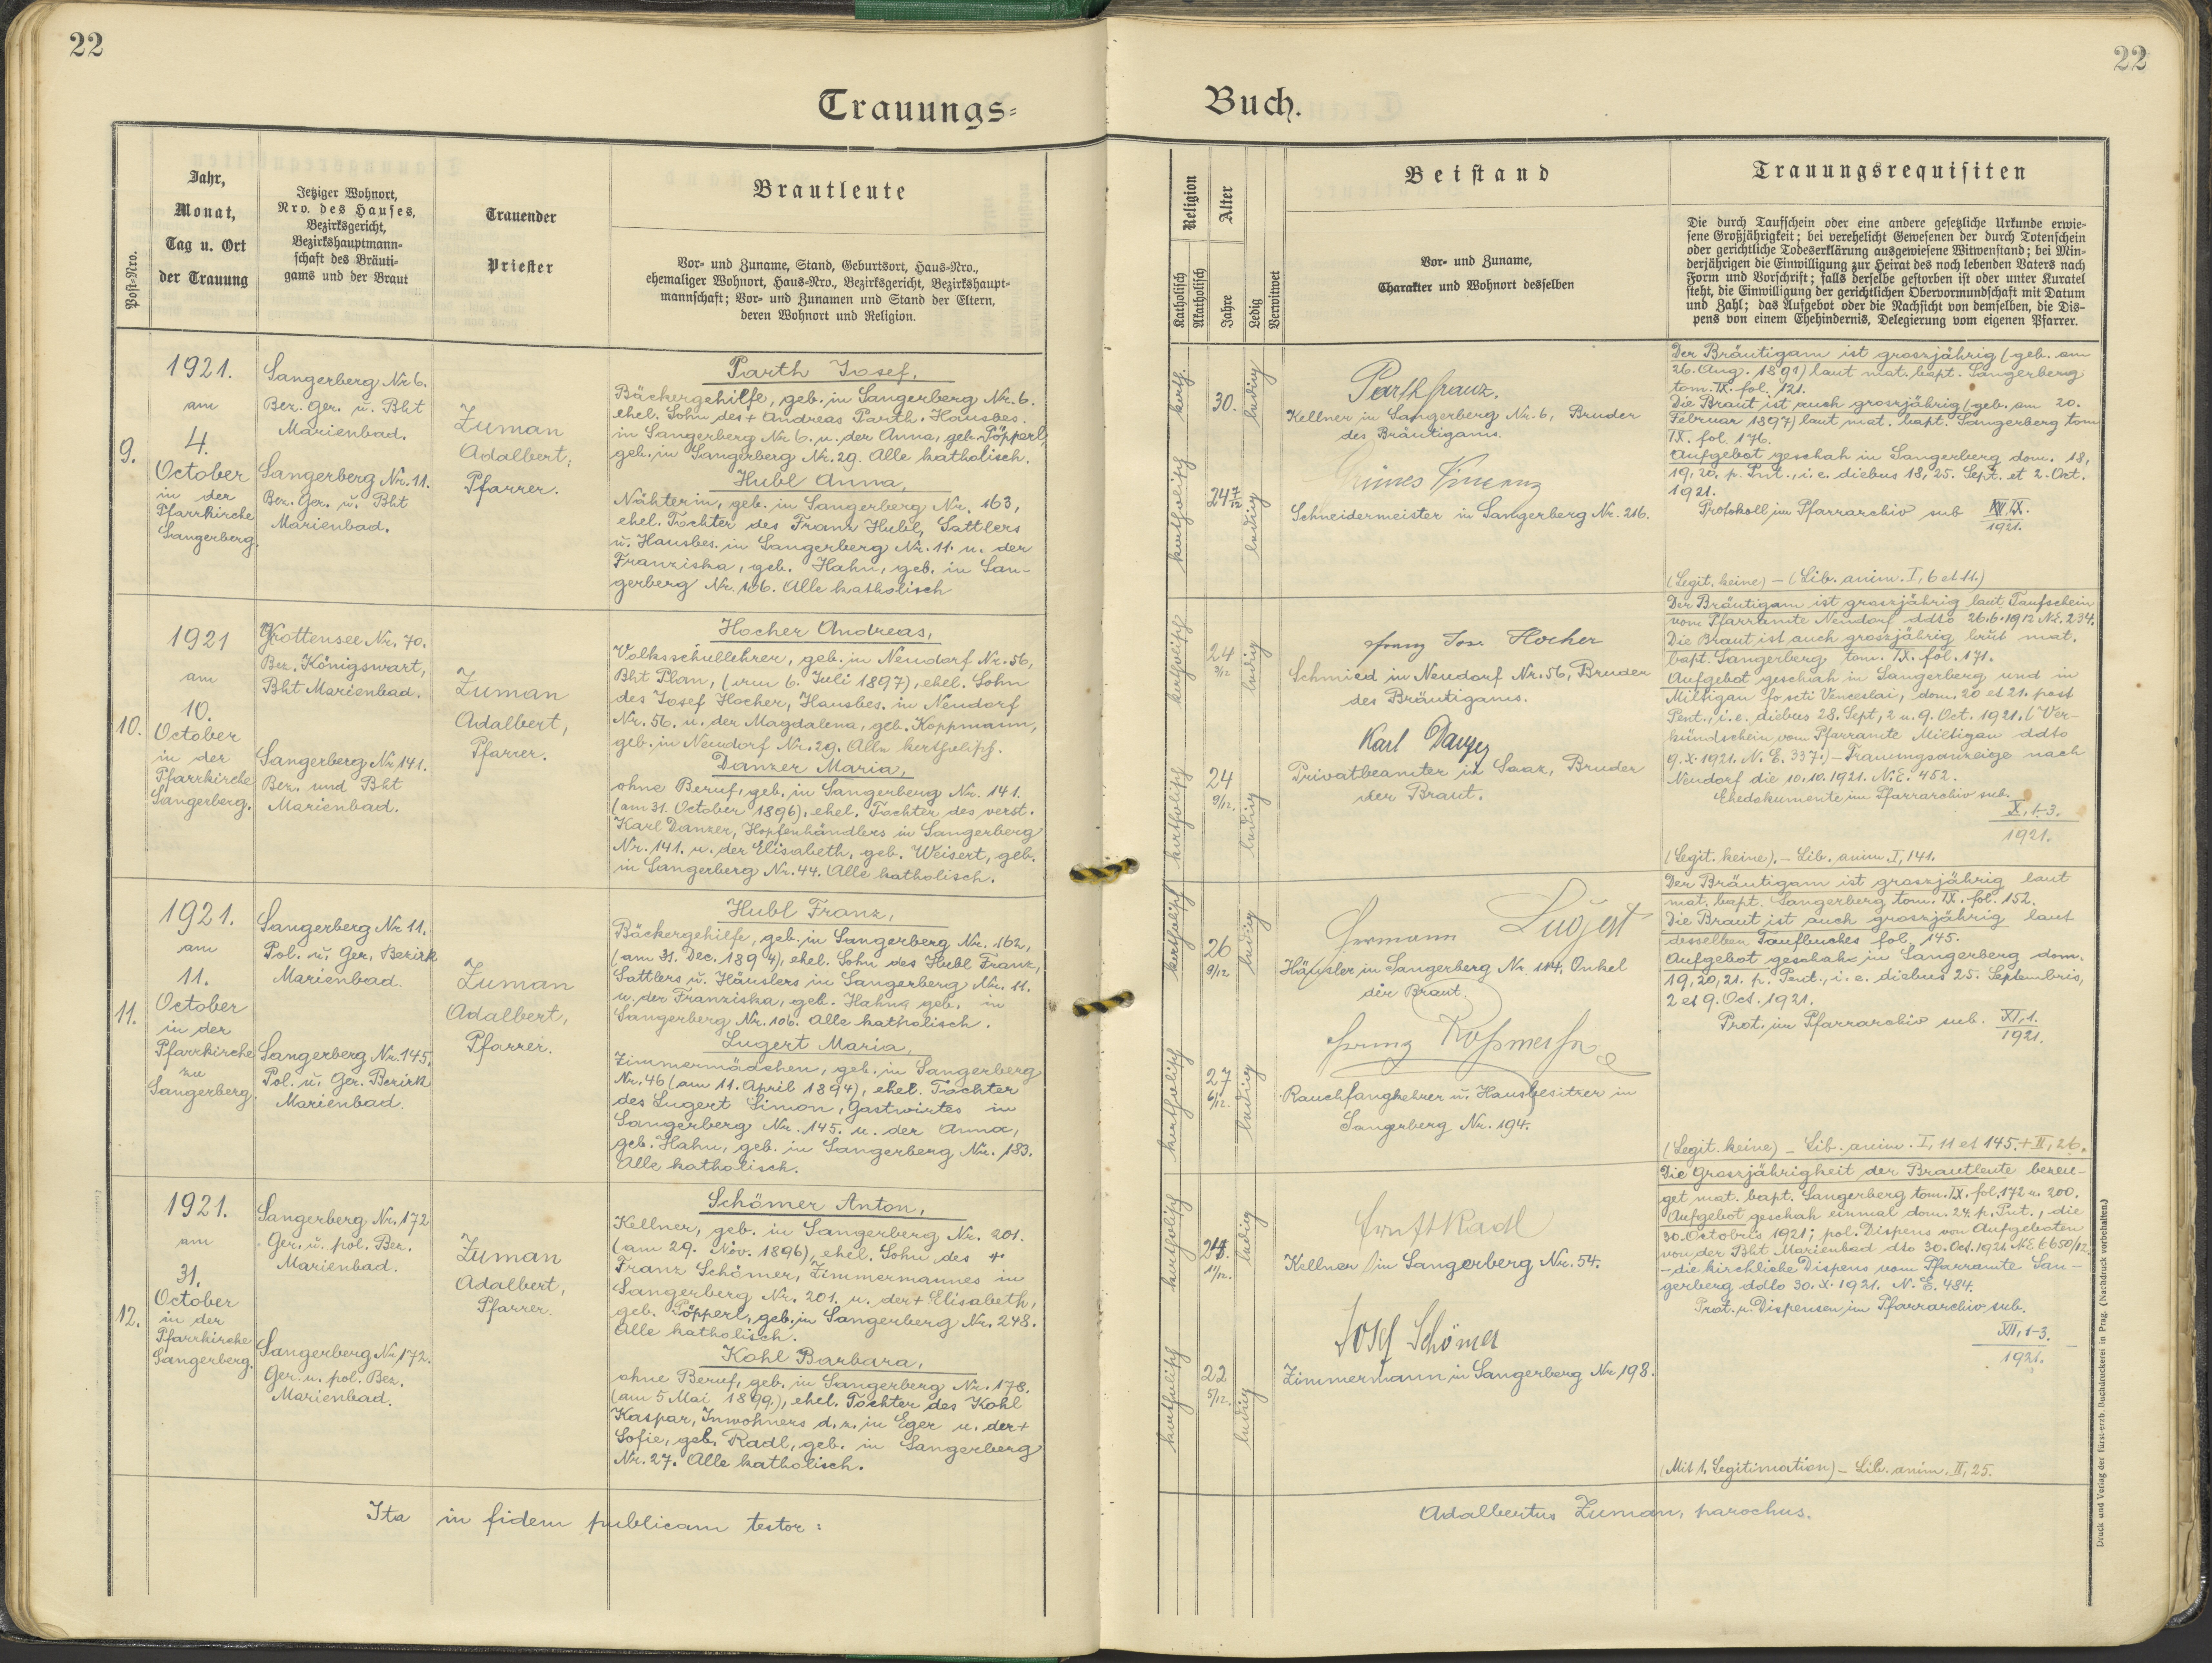 22
22
Trauungs=
Buch.
Post-Nro.
Jahr,
Monat,
Tag u. Ort
der Trauung
Jetziger Wohnort,
Nro. des Hauses,
Bezirksgericht,
Bezirkshauptmann-
schaft des Bräuti-
gams und der Braut
Trauender
Priester
Brautleute
Vor- und Zuname, Stand, Geburtsort, Haus-Nro.,
ehemaliger Wohnort, Haus-Nro., Bezirksgericht, Bezirkshaupt-
mannschaft; Vor- und Zunamen und Stand der Eltern,
deren Wohnort und Religion.
Religion
Katholisch
Akatholisch
Alter
Jahre
Ledig
Verwitwet
Beistand
Vor- und Zuname,
Charakter und Wohnort desselben
Trauungsrequisiten
Die durch Taufschein oder eine andere gesetzliche Urkunde erwie-
sene Großjährigkeit; bei verehelicht Gewesenen der durch Totenschein
oder gerichtliche Todeserklärung ausgewiesene Witwenstand; bei Min-
derjährigen die Einwilligung zur Heirat des noch lebenden Vaters nach
Form und Vorschrift; falls derselbe gestorben ist oder unter Kuratel
steht, die Einwilligung der gerichtlichen Obervormundschaft mit Datum
und Zahl; das Aufgebot oder die Nachsicht von demselben, die Dis-
pens von einem Ehehindernis, Delegierung vom eigenen Pfarrer.
9.
1921.
am
4.
October
in der
Pfarrkirche
Sangerberg.
Sangerberg Nr. 6.
Bez. Ger. u. Bht
Marienbad.
Sangerberg Nr. 11.
Bez. Ger. u. Bht
Marienbad.
Zuman
Adalbert,
Pfarrer.
Parth Josef,
Bäckergehilfe, geb. in Sangerberg Nr. 6.
ehel. Sohn des + Andreas Parth, Hausbes.
in Sangerberg Nr. 6. u. der Anna, geb. Pöpperl,
geb. in Sangerberg Nr. 29. Alle katholisch.
Hubl Anna,
Nähterin, geb. in Sangerberg Nr. 163,
ehel. Tochter des Franz Hubl, Sattlers
u. Hausbes. in Sangerberg Nr. 11. u. der
Franziska, geb. Hahn, geb. in San-
gerberg Nr. 106. Alle katholisch
kath.
30.
ledig
katholisch
24 7/12
ledig
Parth Franz.
Kellner in Sangerberg Nr. 6, Bruder
des Bräutigams.
Schneidermeister in Sangerberg Nr. 216.
Der Bräutigam ist groszjährig (geb. am
26. Aug. 1891) laut mat. bapt. Sangerberg
tom. IX. fol. 121.
Die Braut ist auch groszjährig (geb. am 20.
Februar 1897) laut mat. bapt. Sangerberg tom
IX. fol. 176.
Aufgebot geschah in Sangerberg dom. 18,
19, 20, p. Pnt., i. e. diebus 18, 25. Sept. et 2. Oct.
1921.
Protokoll im Pfarrarchiv sub IX.
1921.
(Legit. keine) – (Lib. anim. I, 6 et 11.)
10.
1921
am
10.
October
in der
Pfarrkirche
Sangerberg.
Grottensee Nr. 70.
Bez. Königswart,
Bht Marienbad.
Sangerberg Nr 141.
Bez. und Bht
Marienbad.
Zuman
Adalbert,
Pfarrer.
Hocher Andreas,
Volksschullehrer, geb. in Neudorf Nr. 56,
Bht Plan, (am 6. Juli 1897), ehel. Sohn
des Josef Hocher, Hausbes. in Neudorf
Nr. 56. u. der Magdalena, geb. Koppmann,
geb. in Neudorf Nr. 29. Alle katholisch.
Danzer Maria,
ohne Beruf, geb. in Sangerberg Nr. 141.
(am 31. October 1896), ehel. Tochter des verst.
Karl Danzer, Hopfenhändlers in Sangerberg
Nr. 141. u. der Elisabeth, geb. Weisert, geb.
in Sangerberg Nr. 44. Alle katholisch.
katholisch
24
3/12
ledig
katholisch
24
9/12.
ledig
Franz Jos. Hocher
Schmied in Neudorf Nr. 56, Bruder
des Bräutigams.
Karl Danzer
Privatbeamter in Saaz, Bruder
der Braut.
Der Bräutigam ist groszjährig laut Taufschein
vom Pfarramte Neudorf ddto 26.6.1912 N.E. 234.
Die Braut ist auch groszjährig laut mat.
bapt. Sangerberg tom. IX. fol. 171.
Aufgebot geschah in Sangerberg und in
Miltigau fo scti Venceslai, dom. 20 et 21. post
Pent., i. e. diebus 28. Sept, 2 u. 9. Oct. 1921. (Ver-
kündschein vom Pfarramte Miltigau ddto
9. X. 1921. N. E. 337.) – Trauungsanzeige nach
Neudorf die 10.10.1921. N. E. 452.
Ehedokumente im Pfarrarchiv sub.
X, 1-3.
1921.
(Legit. keine). – Lib. anim. I, 141.
11.
1921.
am
11.
October
in der
Pfarrkirche
zu
Sangerberg.
Sangerberg Nr 11.
Pol. u. Ger. Bezirk
Marienbad.
Sangerberg Nr. 145,
Pol. u. Ger. Bezirk
Marienbad.
Zuman
Adalbert,
Pfarrer.
Hubl Franz,
Bäckergehilfe, geb. in Sangerberg Nr. 162,
(am 31. Dec. 1894), ehel. Sohn des Hubl Franz,
Sattlers u. Häuslers in Sangerberg Nr. 11.
u. der Franziska, geb. Hahn, geb. in
Sangerberg Nr. 106. Alle katholisch.
Lugert Maria,
Zimmermädchen, geb. in Sangerberg
Nr. 46 (am 11. April 1894), ehel. Tochter
des Lugert Simon, Gastwirtes in
Sangerberg Nr. 145. u. der Anna,
geb. Hahn, geb. in Sangerberg Nr. 183.
Alle katholisch.
katholisch
26
9/12
ledig
katholisch
27
6/12.
ledig
Hermann Lugert
Häusler in Sangerberg Nr. 114, Onkel
der Braut.
Franz
Rauchfangkehrer u. Hausbesitzer in
Sangerberg Nr. 194.
Der Bräutigam ist groszjährig laut
mat. bapt. Sangerberg tom. IX. fol. 152.
Die Braut ist auch groszjährig laut
desselben Taufbuches fol. 145.
Aufgebot geschah in Sangerberg dom.
19, 20, 21. p. Pent., i. e. diebus 25. Septembris,
2 et 9. Oct. 1921.
Prot. im Pfarrarchiv sub. XI, 1.
1921.
(Legit. keine) – Lib. anim. I, 11 et 145. + II, 26.
12.
1921.
am
31.
October
in der
Pfarrkirche
Sangerberg.
Sangerberg Nr. 172
Ger. u. pol. Bez.
Marienbad.
Sangerberg Nr 172.
Ger. u. pol. Bez.
Marienbad.
Zuman
Adalbert,
Pfarrer.
Schömer Anton,
Kellner, geb. in Sangerberg Nr. 201.
(am 29. Nov. 1896), ehel. Sohn des +
Franz Schömer, Zimmermannes in
Sangerberg Nr. 201. u. der + Elisabeth,
geb. Pöpperl, geb. in Sangerberg Nr. 248.
Alle katholisch.
Kohl Barbara,
ohne Beruf, geb. in Sangerberg Nr. 178.
(am 5 Mai 1899.), ehel. Tochter des Kohl
Kaspar, Inwohners d. z. in Eger u. der +
Sofie, geb. Radl, geb. in Sangerberg
Nr. 27. Alle katholisch.
katholisch
24.
11/12.
ledig
katholisch
22
5/12.
ledig
Ernst Radl
Kellner in Sangerberg Nr. 54.
Josef Schömer
Zimmermann in Sangerberg Nr 198.
Die Groszjährigkeit der Brautleute bezeu-
get mat. bapt. Sangerberg tom. IX. fol. 172 u. 200.
Aufgebot geschah einmal dom. 24. p. Pnt., die
30. Octobris 1921; pol. Dispens von Aufgeboten
von der Bht Marienbad dto 30. Oct. 1921 N.E. 6650/12.
– die kirchliche Dispens vom Pfarramte San-
gerberg ddto 30. X. 1921. N. E. 484.
Prot. u. Dispensen im Pfarrarchiv sub.
XII, 1-3.
1921.
(Mit 1. Legitimation) – Lib. anim. II, 25.
Ita in fidem publicam testor:
Adalbertus Zuman, parochus.
Druck und Verlag der fürst-erzb. Buchdruckerei in Prag. (Nachdruck vorbehalten.)